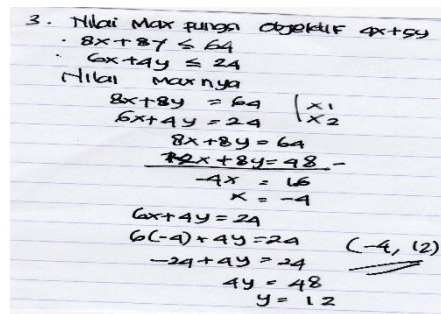 3. Nilai Max fungsi objektif 4x+5y
. 8x+8y ≤ 64
. 6x+4y ≤ 24
Nilai maxnya
8x+8y = 64 | x1
6x+4y = 24 | x2
8x+8y = 64
12x+8y = 48 -
-4x = 16
x = -4
6x+4y = 24
6(-4)+4y = 24 (-4, 12)
-24+4y = 24
4y = 48
y = 12